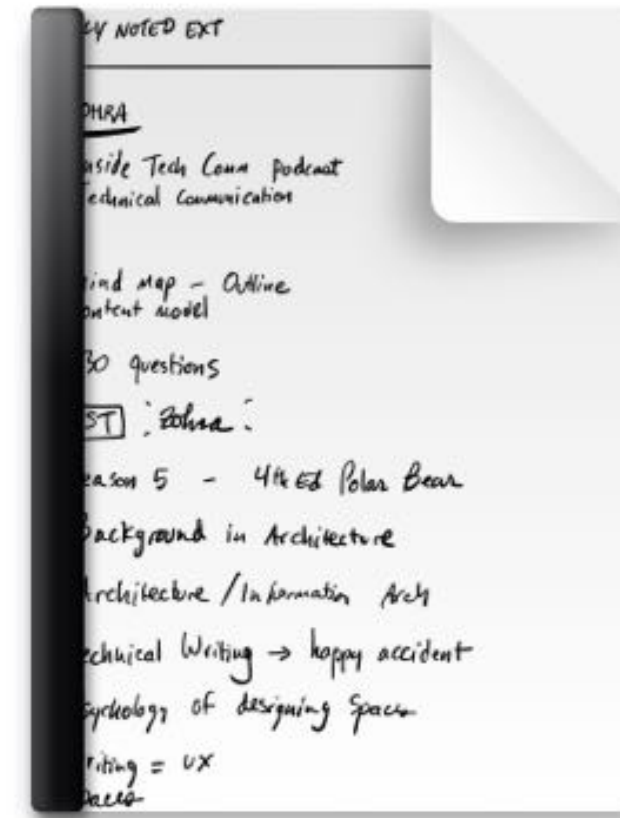 LY NOTED EXT
OHRA
nside Tech Comm podcast
Technical Communication
ind map - Outline
ontent model
30 questions
ST : Zohra :
eason 5 - 4th Ed Polar Bear
Background in Architecture
Architecture / Information Arch
echnical Writing → happy accident
sychology of designing Spaces
riting = UX
paces